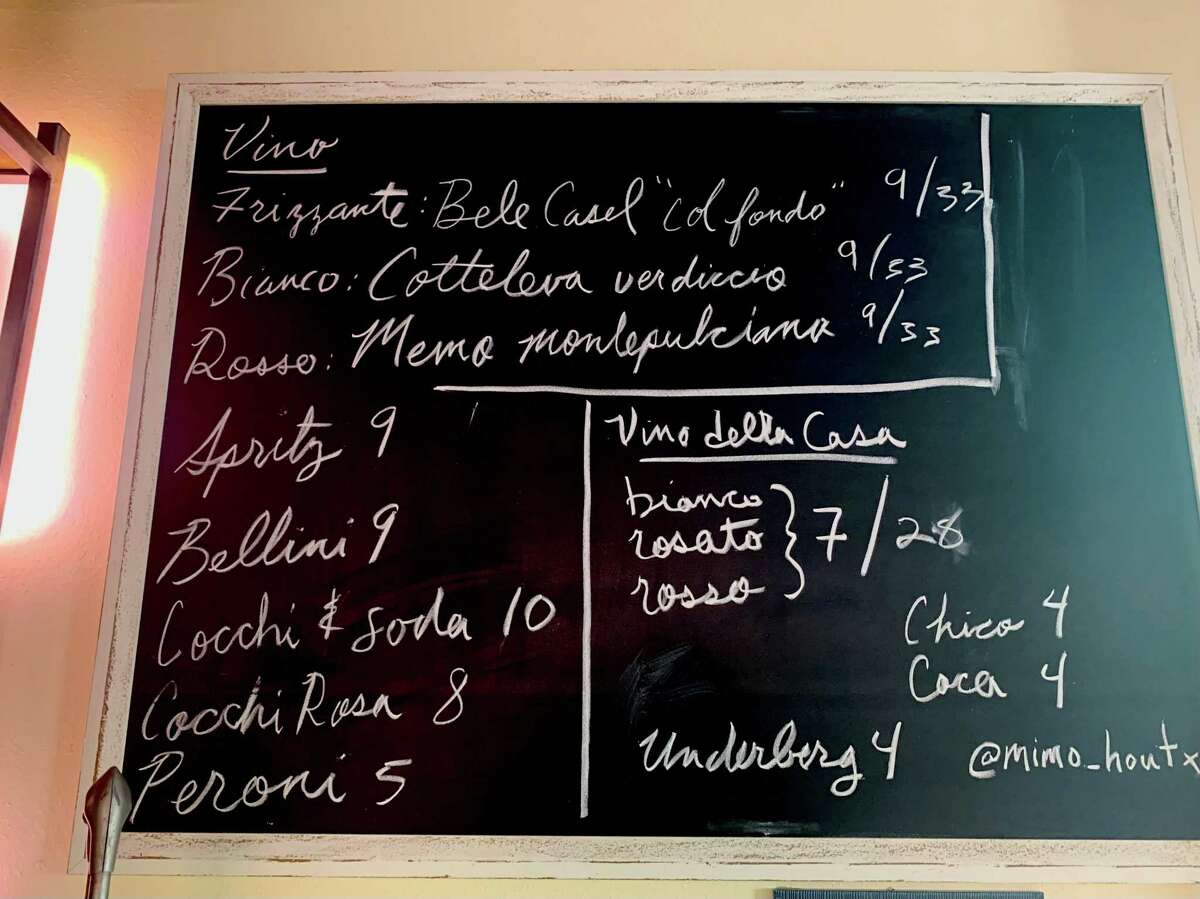 Vino
Frizzante: Bele Casel "Col fondo" 9/33
Bianco: Cotteleva verdiccio 9/33
Rosso: Memo montepulciano 9/33
Spritz 9
Bellini 9
Cocchi & soda 10
Cocchi Rosa 8
Peroni 5
Vino della Casa
bianco
rosato } 7/28
rosso
Chico 4
Coca 4
Underberg 4
@mimo_houtx